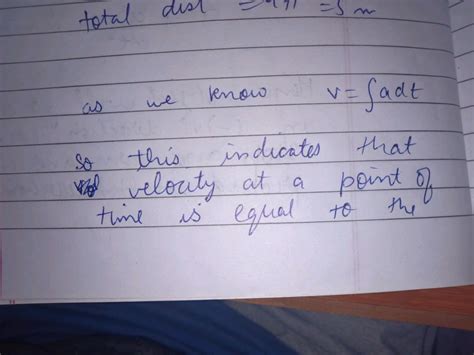 total dist = = 5 m
as we know v = ∫adt
so this indicates that
velocity at a point of
time is equal to the